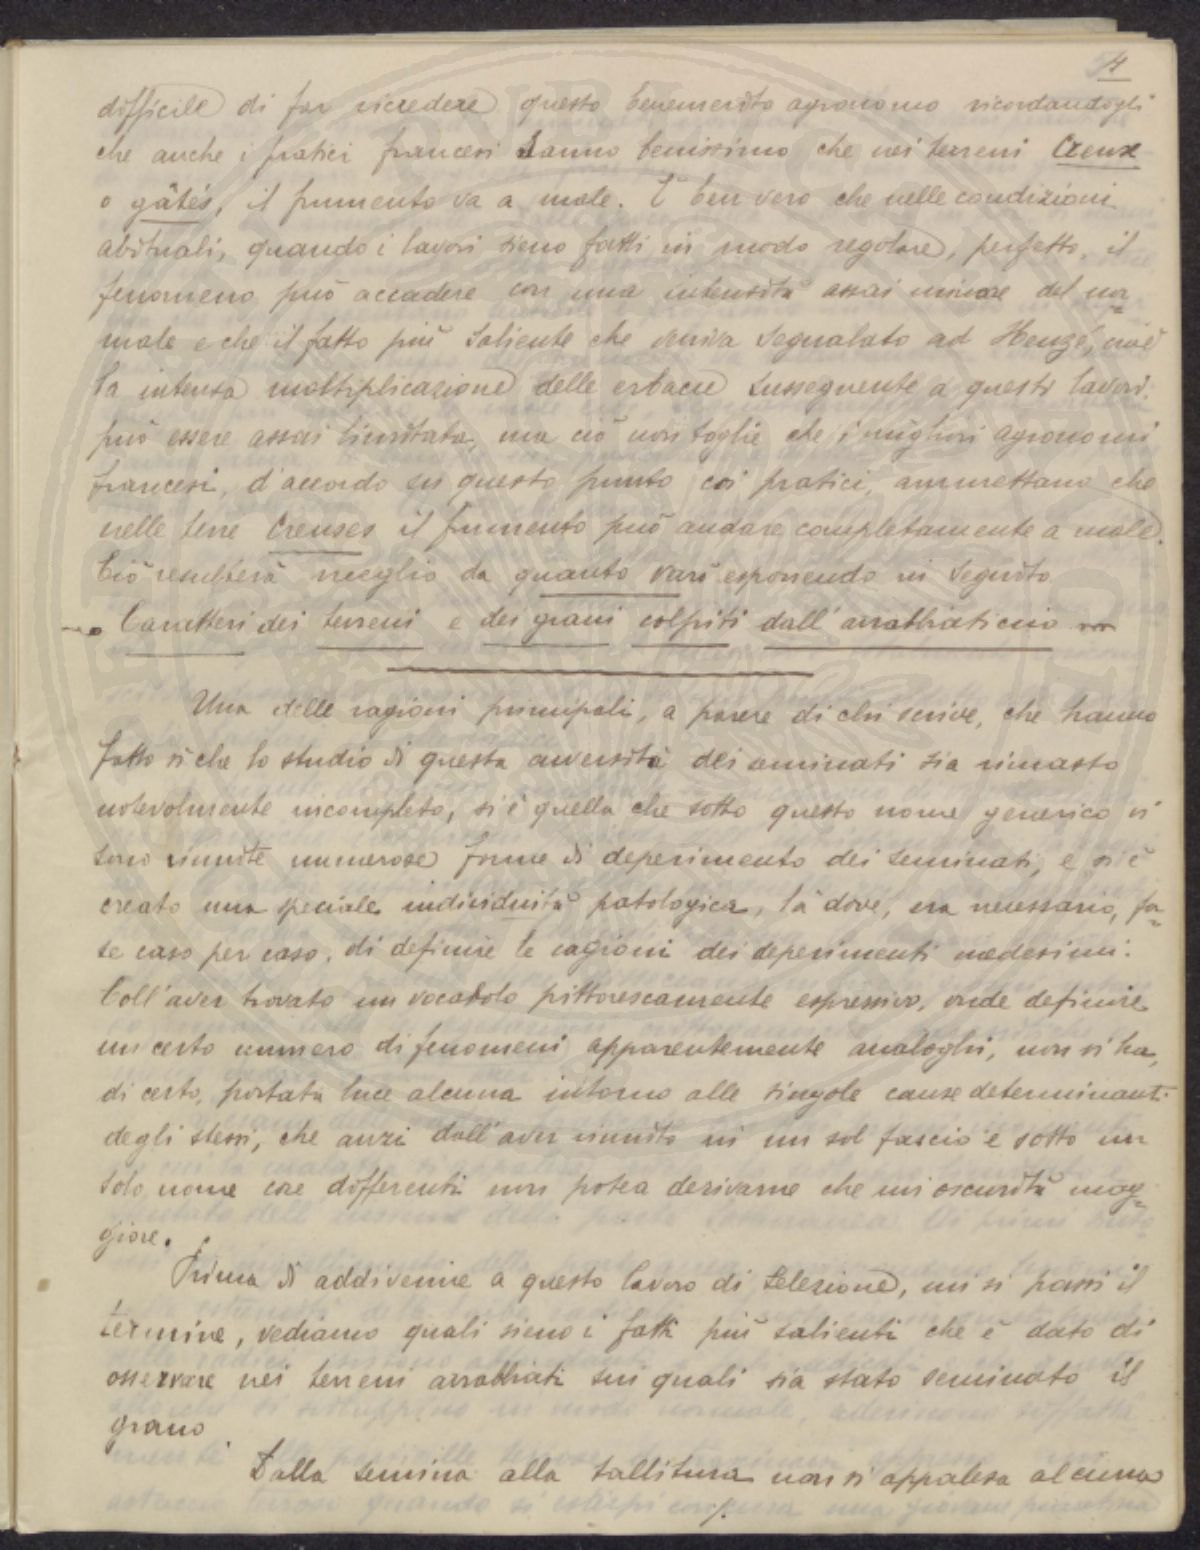 4
difficile di far ricredere questo benemerito agronomo ricordandogli
che anche i pratici francesi sanno benissimo che nei terreni Creux
o gâtés, il frumento va a male. È ben vero che nelle condizioni
abituali, quando i lavori sieno fatti in modo regolare, perfetto, il
fenomeno può accadere con una intensità assai minore del nor=
male e che il fatto più saliente che veniva segnalato ad Heuzé, cioè
la intensa moltiplicazione delle erbacce susseguente a questi lavori.
può essere assai limitata, ma ciò non toglie che i migliori agronomi
francesi, d'accordo su questo punto coi pratici, ammettano che
nelle terre Creuses il frumento può andare completamente a male.
Ciò resulterà meglio da quanto varò esponendo in seguito
Caratteri dei terreni e dei grani colpiti dall'arrabbiaticcio
Una delle ragioni principali, a parere di chi scrive, che hanno
fatto sì che lo studio di questa avversità dei seminati sia rimasto
notevolmente incompleto, si è quella che sotto questo nome generico vi
sono riunite numerose forme di deperimento dei seminati, e si è
creato una speciale individuità patologica, là dove, era necessario, for=
se caso per caso, di definire le cagioni dei deperimenti medesimi.
Coll'aver trovato un vocabolo pittorescamente espressivo, onde definire
un certo numero di fenomeni apparentemente analoghi, non si ha,
di certo, portata luce alcuna intorno alle singole cause determinanti
degli stessi, che anzi dall'aver riunito in un sol fascio e sotto un
solo nome cose differenti non potea derivarne che un'oscurità mag=
giore.
Prima di addivenire a questo lavoro di selezione, mi si passi il
termine, vediamo quali sieno i fatti più salienti che è dato di
osservare nei terreni arrabbiati sui quali sia stato seminato il
grano.
Dalla semina alla tallitura non si appalesa alcuna